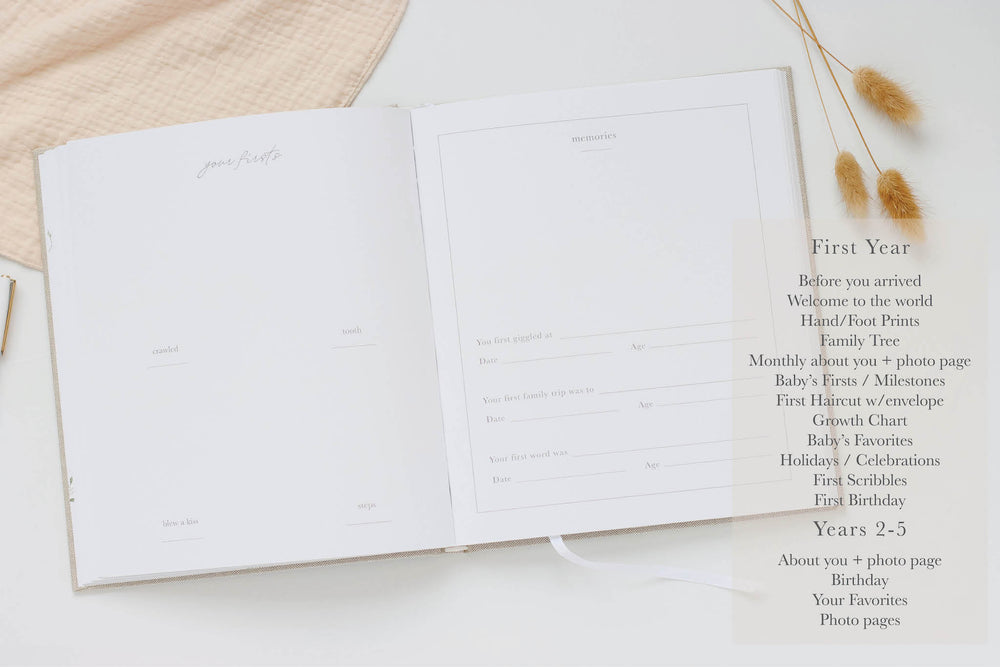 your firsts
crawled
tooth
blew a kiss
steps
memories
You first giggled at
Date Age
Your first family trip was to
Date Age
Your first word was
Date Age
First Year
Before you arrived
Welcome to the world
Hand/Foot Prints
Family Tree
Monthly about you + photo page
Baby's Firsts / Milestones
First Haircut w/envelope
Growth Chart
Baby's Favorites
Holidays / Celebrations
First Scribbles
First Birthday
Years 2-5
About you + photo page
Birthday
Your Favorites
Photo pages